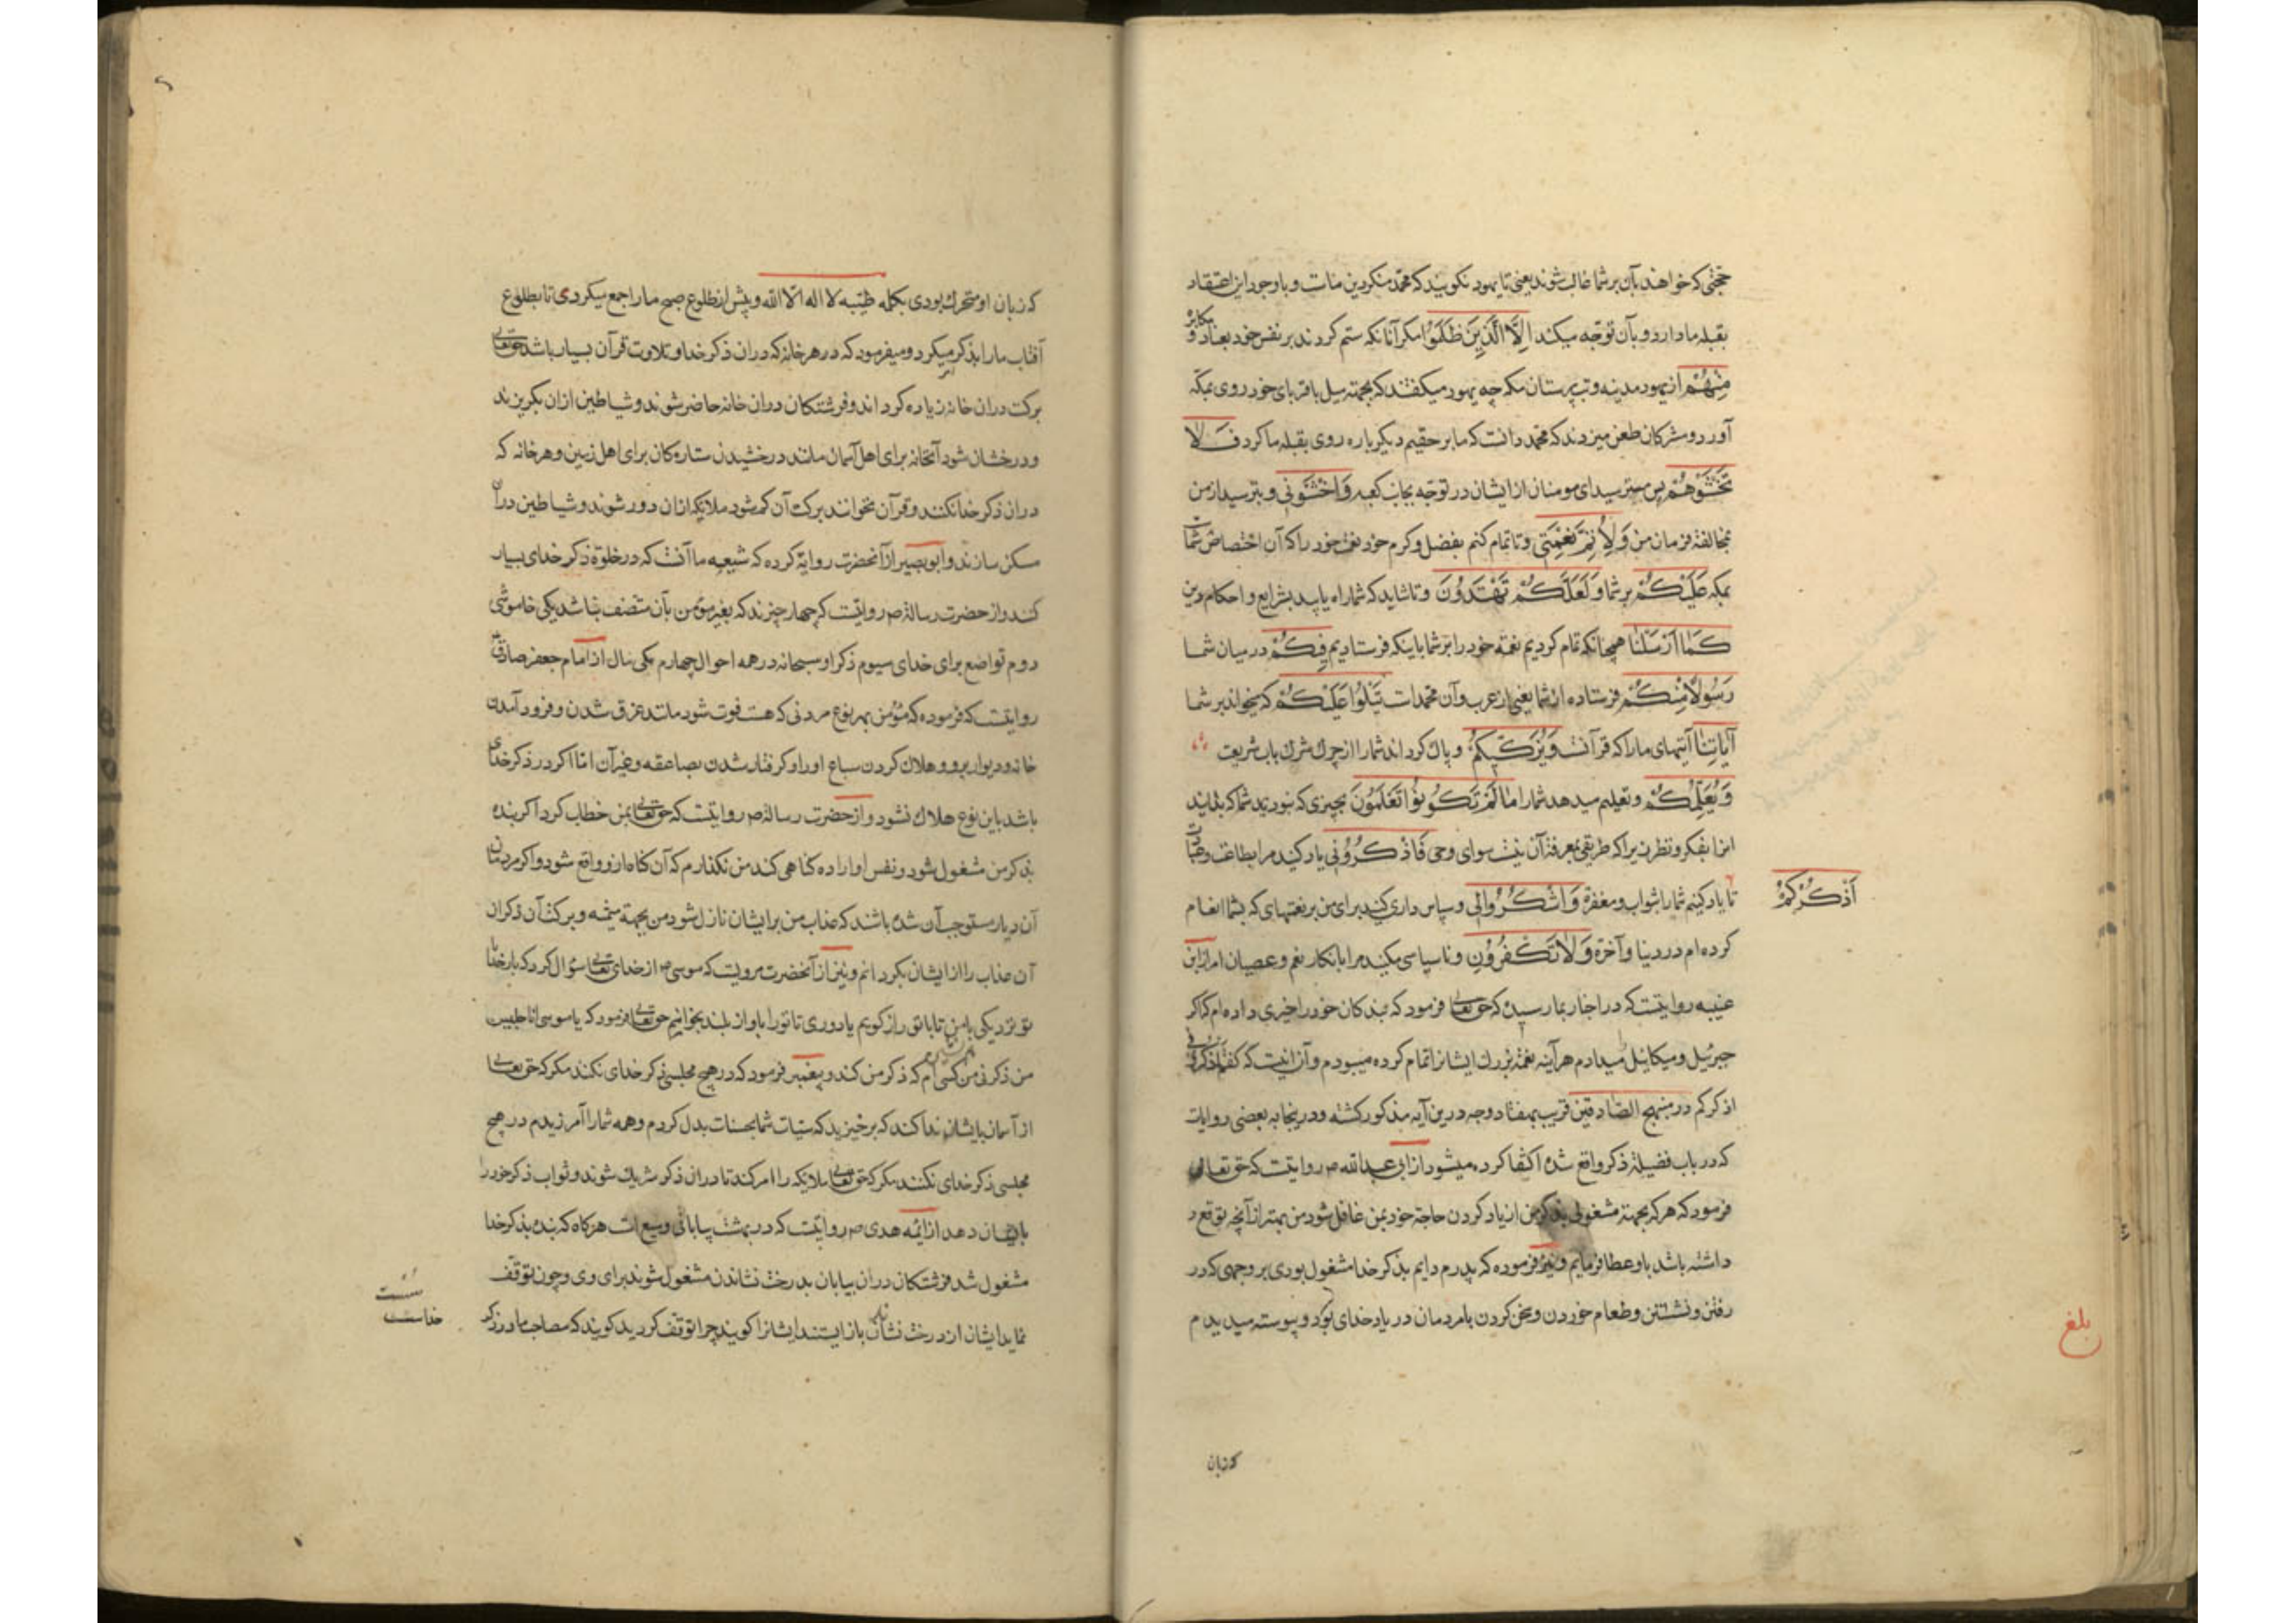 حجتی که خواهند بآن بر شما غالب شوند یعنی تا یهود نکویند که محمد منکر دین ماست و باوجود این اعتقاد
بقبله ما دارد و بآن توجه میکند اِلَّا الَّذِینَ ظَلَمُوا مکر آنانکه ستم کردند بر نفس خود بعناد و
مکابره
مِنْهُمْ از یهود مدینه و بت پرستان مکه چه یهود میکفتند که بجهته میل باقربای خود روی بمکه
آورد و مشرکان طعن میزدند که محمد دانست که ما بر حقیم دیکر باره روی بقبله ما کرد فَلَا
تَخْشَوْهُمْ پس مترسید ای مومنان از ایشان در توجه بجانب کعبه وَاخْشَوْنِی و بترسید از من
بمخالفة فرمان من وَلِاُتِمَّ نِعْمَتِی و تا تمام کنم بفضل و کرم خود نعمت خود را که آن اختصاص شماست
بمکه عَلَیْکُمْ بر شما وَلَعَلَّکُمْ تَهْتَدُونَ و تا شاید که شما راه یابید بشرایع و احکام دین
کَمَا اَرْسَلْنَا همچنانکه تمام کردیم نعمة خود را بر شما باینکه فرستادیم فِیکُمْ در میان شما
رَسُولًا مِنْکُمْ فرستاده از شما یعنی از عرب و آن محمد است یَتْلُوا عَلَیْکُمْ که میخواند بر شما
آیَاتِنَا آیتهای ما را که قرآنست وَیُزَکِّیکُمْ و پاک کرداند شما را از چرک شرک بآب شریعت
وَیُعَلِّمُکُمْ و تعلیم میدهد شما را مَا لَمْ تَکُونُوا تَعْلَمُونَ بچیزی که نبودید شما که بدانید
انرا بفکر و نظر زیرا که طریقی بمعرفة آن نیست سوای وحی فَاذْکُرُونِی یاد کنید مرا بطاعت و عبادت
اَذْکُرْکُمْ
تا یاد کنیم شما را بثواب و مغفرة وَاشْکُرُوا لِی و سپاس داری کنید برای من بر نعمتهای که بشما انعام
کرده ام در دنیا و آخرة وَلَا تَکْفُرُونِ و ناسپاسی مکنید مرا بانکار نعم و عصیان امر از ابن
عیینه روایتست که در اخبار بما رسیده که حق تعالی فرمود که بندکان خود را خیری داده ام که اکر
جبرئیل و میکائیل میدادم هر آینه نعمة بزرک ایشانرا تمام کرده میبودم و آن اینست که کفتم اذکرونی
اذکرکم در منهج الصادقین قریب بهفتاد وجه درین آیه مذکور کشته و درینجا به بعضی روایات
که در باب فضیلة ذکر واقع شده اکتفا کرده میشود از ابی عبدالله ص روایتست که حق تعالی
فرمود که هر که بجهته مشغولی بذکر من از یاد کردن حاجة خود بمن غافل شود من بهتر از آنچه توقع
داشته باشد باو عطا فرمایم و نیز فرموده که پدرم دایم بذکر خدا مشغول بودی بر وجهی که در
رفتن و نشستن و طعام خوردن و سخن کردن با مردمان در یاد خدای بود و پیوسته میدیدم
بلغ
که زبان
که زبان او متحرک بودی بکلمه طیبه لا اله الا الله و پیش از طلوع صبح ما را جمع میکردی تا بطلوع
آفتاب ما را بذکر امر میکرد و میفرمود که در هر خانه که دران ذکر خدا و تلاوت قرآن بسیار باشد حق تعالی
برکت دران خانه زیاده کرداند و فرشتکان دران خانه حاضر شوند و شیاطین ازان بکریزند
و درخشان شود آنخانه برای اهل آسمان مانند درخشیدن ستارکان برای اهل زمین و هر خانه که
دران ذکر خدا نکنند و قرآن نخوانند برکت آن کم شود ملایکه ازان دور شوند و شیاطین دران
مسکن سازند و ابوبصیر از آنحضرت روایة کرده که شیعه ما آنست که در خلوة ذکر خدای بسیار
کند و از حضرت رسالة ص روایتست که چهار چیزند که بغیر مؤمن بآن متصف نباشد یکی خاموشی
دوم تواضع برای خدای سیوم ذکر او سبحانه در همه احوال چهارم کمی مال از امام جعفر صادق
روایتست که فرموده که مؤمن بهر نوع مردنی که هست فوت شود مانند غرق شدن و فرود آمدن
خانه و دیوار برو و هلاک کردن سباع او را و کرفتار شدن بصاعقه و غیر آن اما اکر در ذکر خدای
باشد باین نوع هلاک نشود و از حضرت رسالة ص روایتست که حق تعالی بمن خطاب کرد اکر بنده
بذکر من مشغول شود و نفس او اراده کناهی کند من نکذارم که آن کناه ازو واقع شود و اکر مردمان
آن دیار مستوجب آن شده باشند که عذاب من برایشان نازل شود من بجهة میمنه و برکت آن ذکران
آن عذاب را از ایشان بکردانم و نیز از آنحضرت مرویست که موسی از خدای تعالی سؤال کرد که بار خدایا
تو نزدیکی بامن تا با تو راز کویم یا دوری تا تو را باواز بلند بخوانم حق تعالی فرمود که یا موسی انا جلیس
من ذکرنی من همنشین کسی ام که ذکر من کند و پیغمبر فرمود که در هیچ مجلسی ذکر خدای نکنند مکر که حق تعالی
از آسمان بایشان ندا کند که برخیزید که سیئات شما بحسنات بدل کردم و همه شما را آمرزیدم در هیچ
مجلسی ذکر خدای نکنند مکر که حق تعالی ملایکه را امر کند تا دران ذکر شریک شوند و ثواب ذکر خود را
بایشان دهد از ائمه هدی ص روایتست که در بهشت بیابانی وسیع است هرکاه که بنده بذکر خدا
مشغول شد فرشتکان دران بیابان بدرخت نشاندن مشغول شوند برای وی و چون توقف
نماید ایشان از درخت نشاندن باز ایستند ایشانرا کویند چرا توقف کردید کویند که مصاحب ما در ذکر
خدا سست